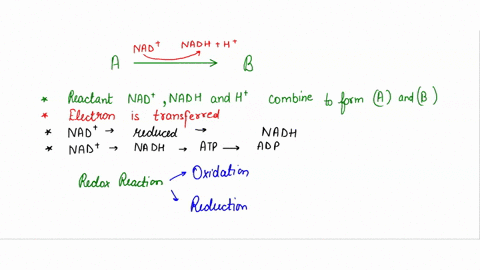 NAD⁺ NADH + H⁺
A → B
* Reactant NAD⁺, NADH and H⁺ combine to form (A) and (B)
* Electron is transferred
* NAD⁺ → reduced → NADH
* NAD⁺ → NADH → ATP → ADP
Oxidation
Redox Reaction
Reduction